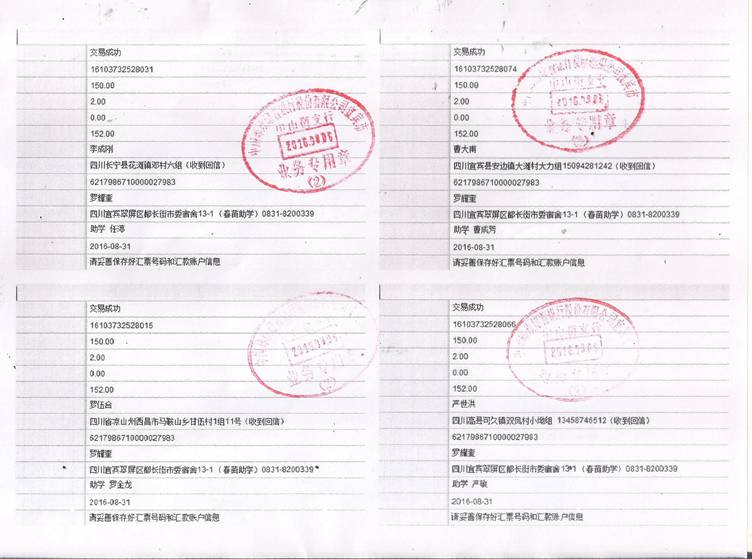 交易成功
16103732528031
150.00
2.00
0.00
152.00
李成刚
四川长宁县花滩镇邓村六组（收到回信）
6217986710000027983
罗耀奎
四川宜宾翠屏区都长街市委宿舍13-1（春苗助学）0831-8200339
助学 任涛
2016-08-31
请妥善保存好汇票号码和汇款账户信息
中山街支行
2016.09.05
业务专用章
(2)
交易成功
16103732528074
150.00
2.00
0.00
152.00
曹大甫
四川宜宾县安边镇大滩村大力组15094281242（收到回信）
6217986710000027983
罗耀奎
四川宜宾翠屏区都长街市委宿舍13-1（春苗助学）0831-8200339
助学 曹成芳
2016-08-31
请妥善保存好汇票号码和汇款账户信息
中山街支行
业务专用章
(2)
交易成功
16103732528015
150.00
2.00
0.00
152.00
罗伍合
四川省凉山州西昌市马鞍山乡甘伍村1组11号（收到回信）
6217986710000027983
罗耀奎
四川宜宾翠屏区都长街市委宿舍13-1（春苗助学）0831-8200339
助学 罗金龙
2016-08-31
请妥善保存好汇票号码和汇款账户信息
交易成功
16103732528066
150.00
2.00
0.00
152.00
严世洪
四川高县可久镇双凤村小坳组 13458746512（收到回信）
6217986710000027983
罗耀奎
四川宜宾翠屏区都长街市委宿舍13-1（春苗助学）0831-8200339
助学 严敏
2016-08-31
请妥善保存好汇票号码和汇款账户信息
中山街支行